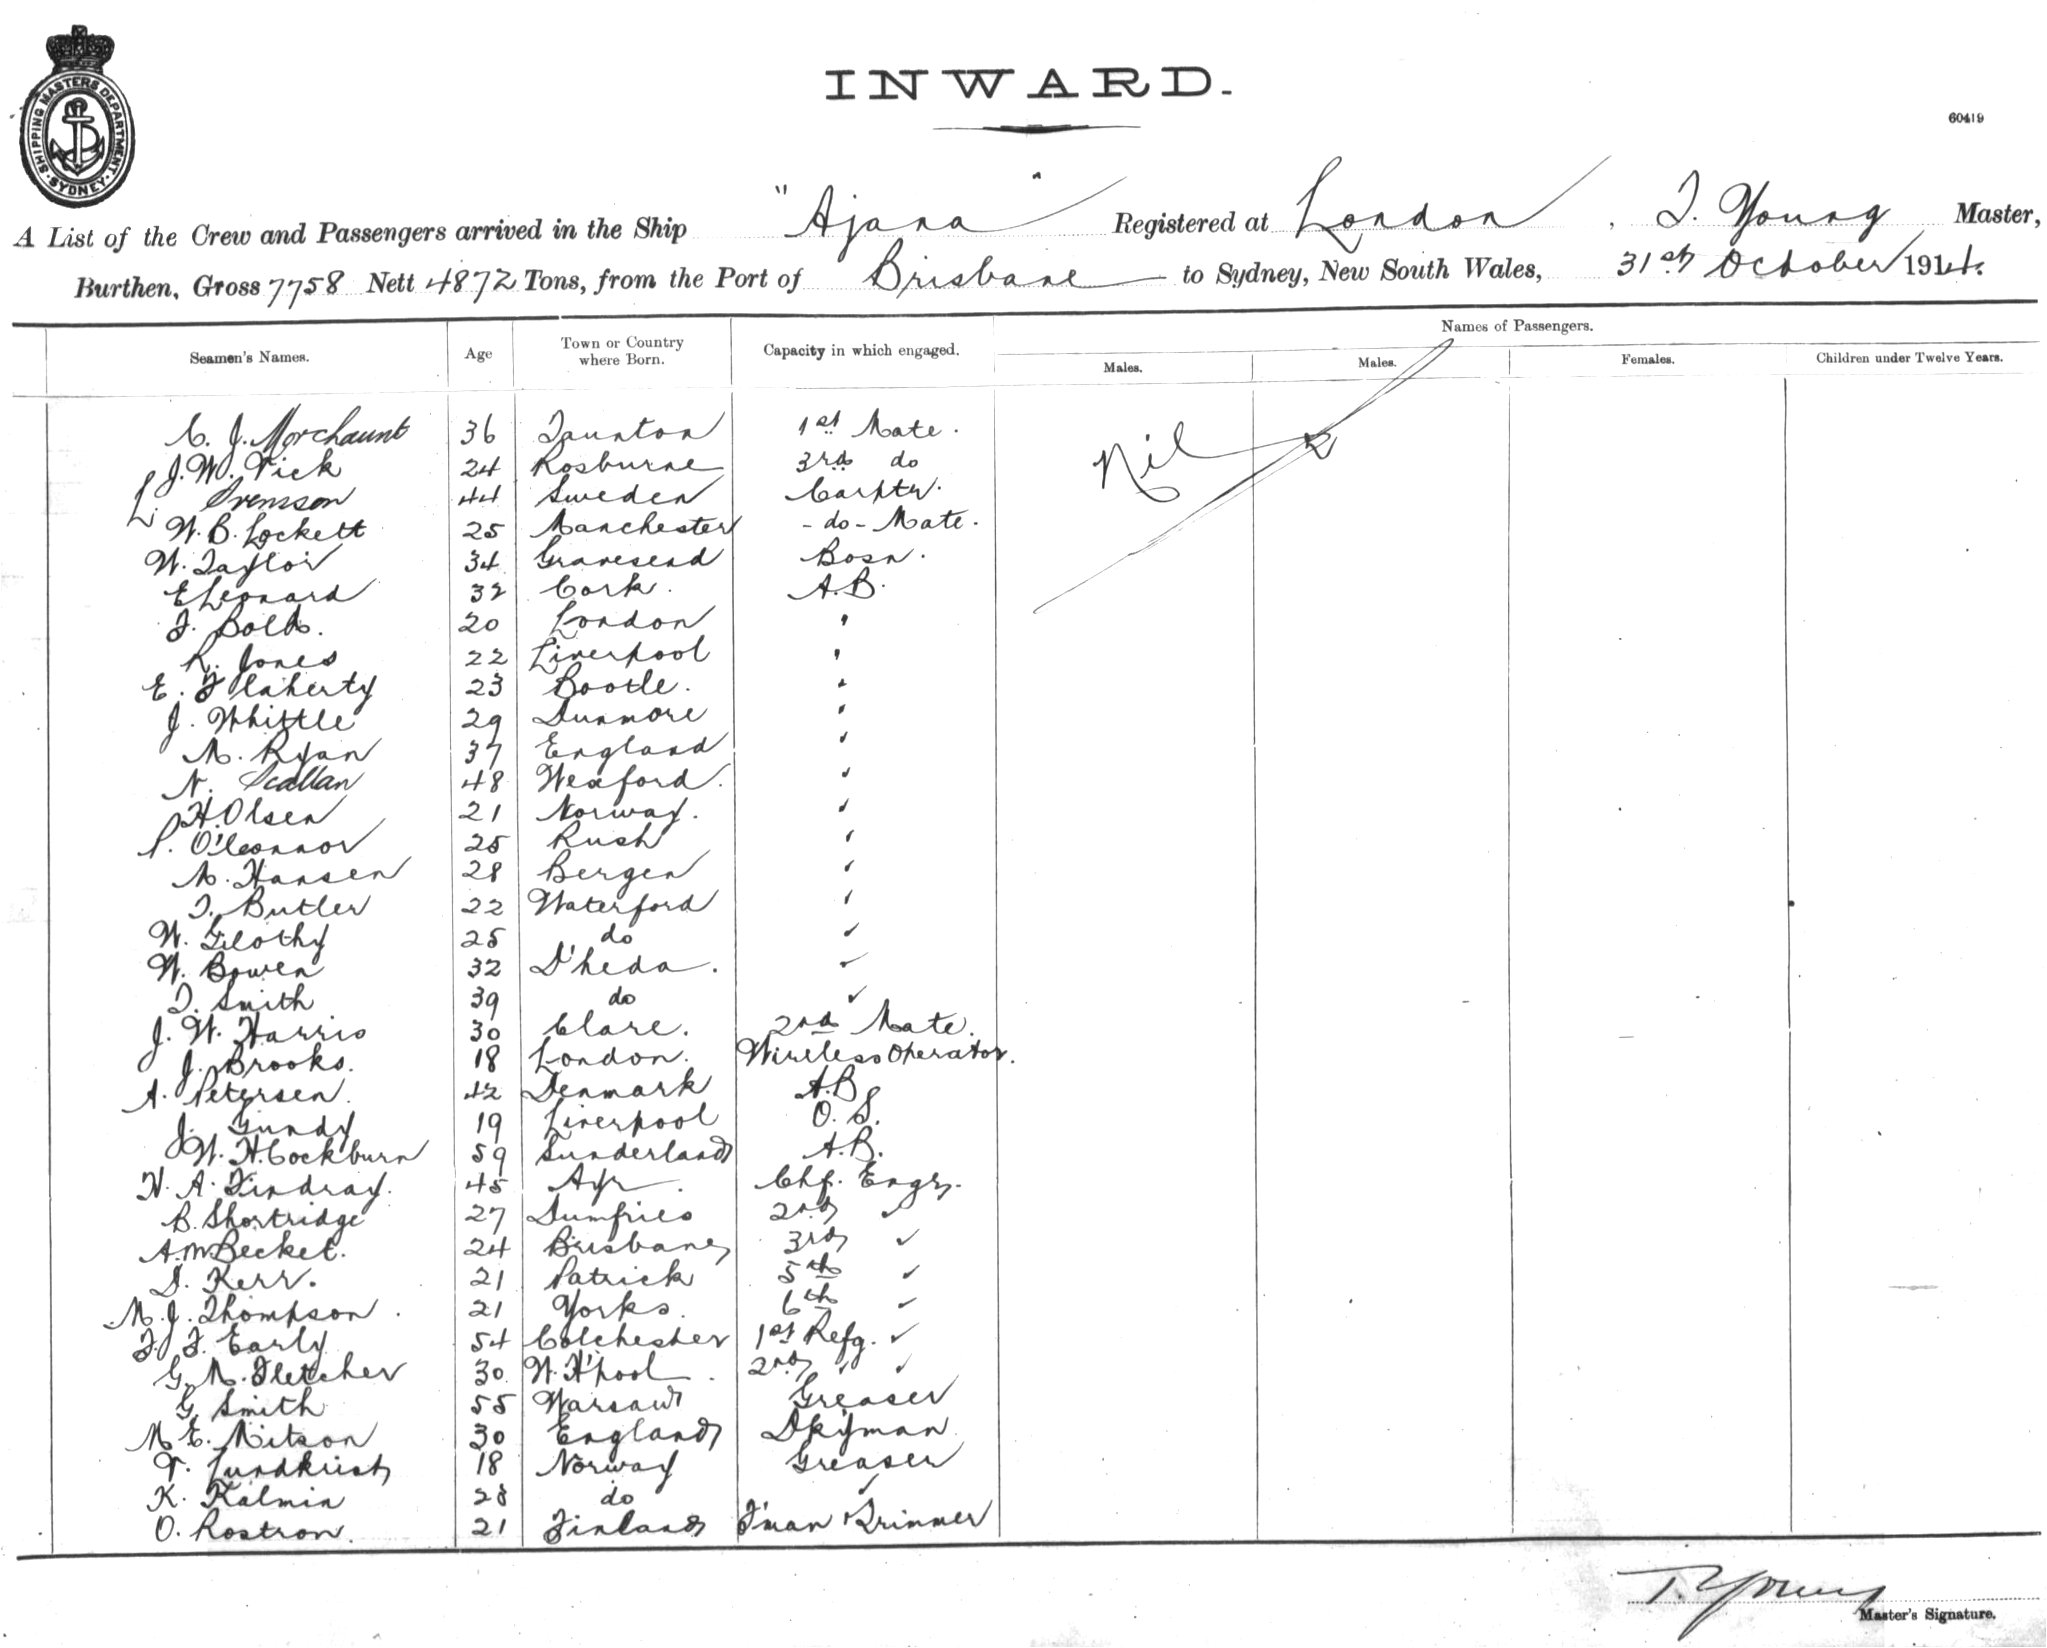 SHIPPING MASTERS DEPARTMENT
SYDNEY
INWARD.
60419
A List of the Crew and Passengers arrived in the Ship "Ajana" Registered at London, T. Young Master,
Burthen, Gross 7758 Nett 4872 Tons, from the Port of Brisbane to Sydney, New South Wales, 31st October 1914.
Names of Passengers.
Seamen's Names. Age Town or Country where Born. Capacity in which engaged. Males. Males. Females. Children under Twelve Years.
C. J. Morchaunt 36 Taunton 1st Mate. Nil
J. W. Vick 24 Rosburne 3rd do
L. Svenson 44 Sweden Carptr.
W. B. Lockett 25 Manchester - do - Mate.
W. Taylor 34 Gravesend Bosn.
E Leonard 32 Cork. A.B.
J. Bolb. 20 London "
R. Jones 22 Liverpool "
E. Flaherty 23 Bootle. "
J. Whittle 29 Dunmore "
M. Ryan 37 England "
N. Scallan 48 Wexford. "
H. Olsen 21 Norway. "
P. O'Connor 25 Rush "
M. Hansen 28 Bergen "
T. Butler 22 Waterford "
W. Gilothy 25 do "
W. Bowen 32 D'heda. "
T. Smith 39 do "
J. W. Harris 30 Clare. 2nd Mate.
J. Brooks. 18 London. Wireless Operator.
A. Petersen. 42 Denmark A.B
J. Gundy 19 Liverpool O. S.
W. H. Cockburn 59 Sunderland A.B.
H. A. Findray. 45 Ayr. Chf. Engr.
B. Shortridge 27 Dumfries 2nd "
A. M. Becket. 24 Brisbane 3rd "
D. Kerr. 21 Patrick 5th "
M. J. Thompson. 21 Yorks. 6th "
F. F. Early 54 Colchester 1st Refg. "
G. M. Fletcher 30 W. H'pool. 2nd " "
G. Smith 55 Warsaw Greaser
M E. Mitson 30 England Dkyman
V. Lundkrist 18 Norway Greaser
K. Kalmin 28 do "
O. Rostron. 21 Finland F'man & Trimmer
T. Young
Master's Signature.